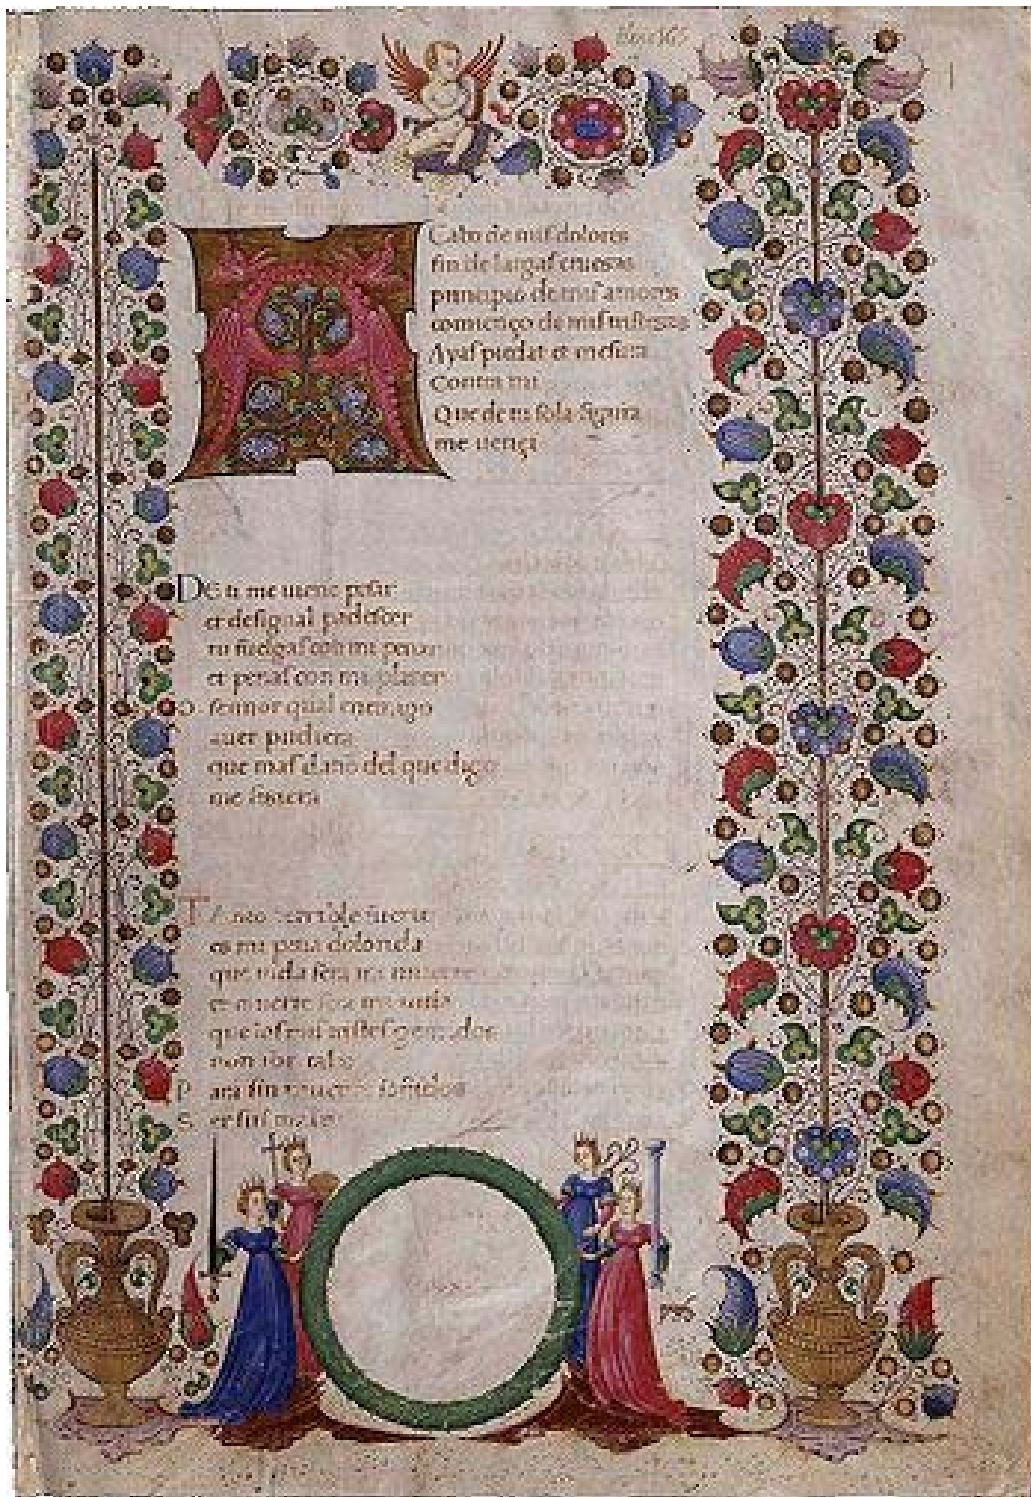 Cabo de mis dolores
fin de largas cruesas
principio de mis amores
comienço de mis tristesas
Ayas piedat et mesura
Contra mi
Que de tu sola figura
me uençi
De ti me uiene pesar
et desigual padesçer
tu fuelgas con mi penar
et penas con mi plaser
O sennor qual enemigo
auer pudiera
que mas dano del que digo
me fisiera
Tanto terrible fuerte
es mi pena dolorida
que uida sera mi muerte
et muerte sera mi uida
que los mis tristes
non son
Para sin
et sus